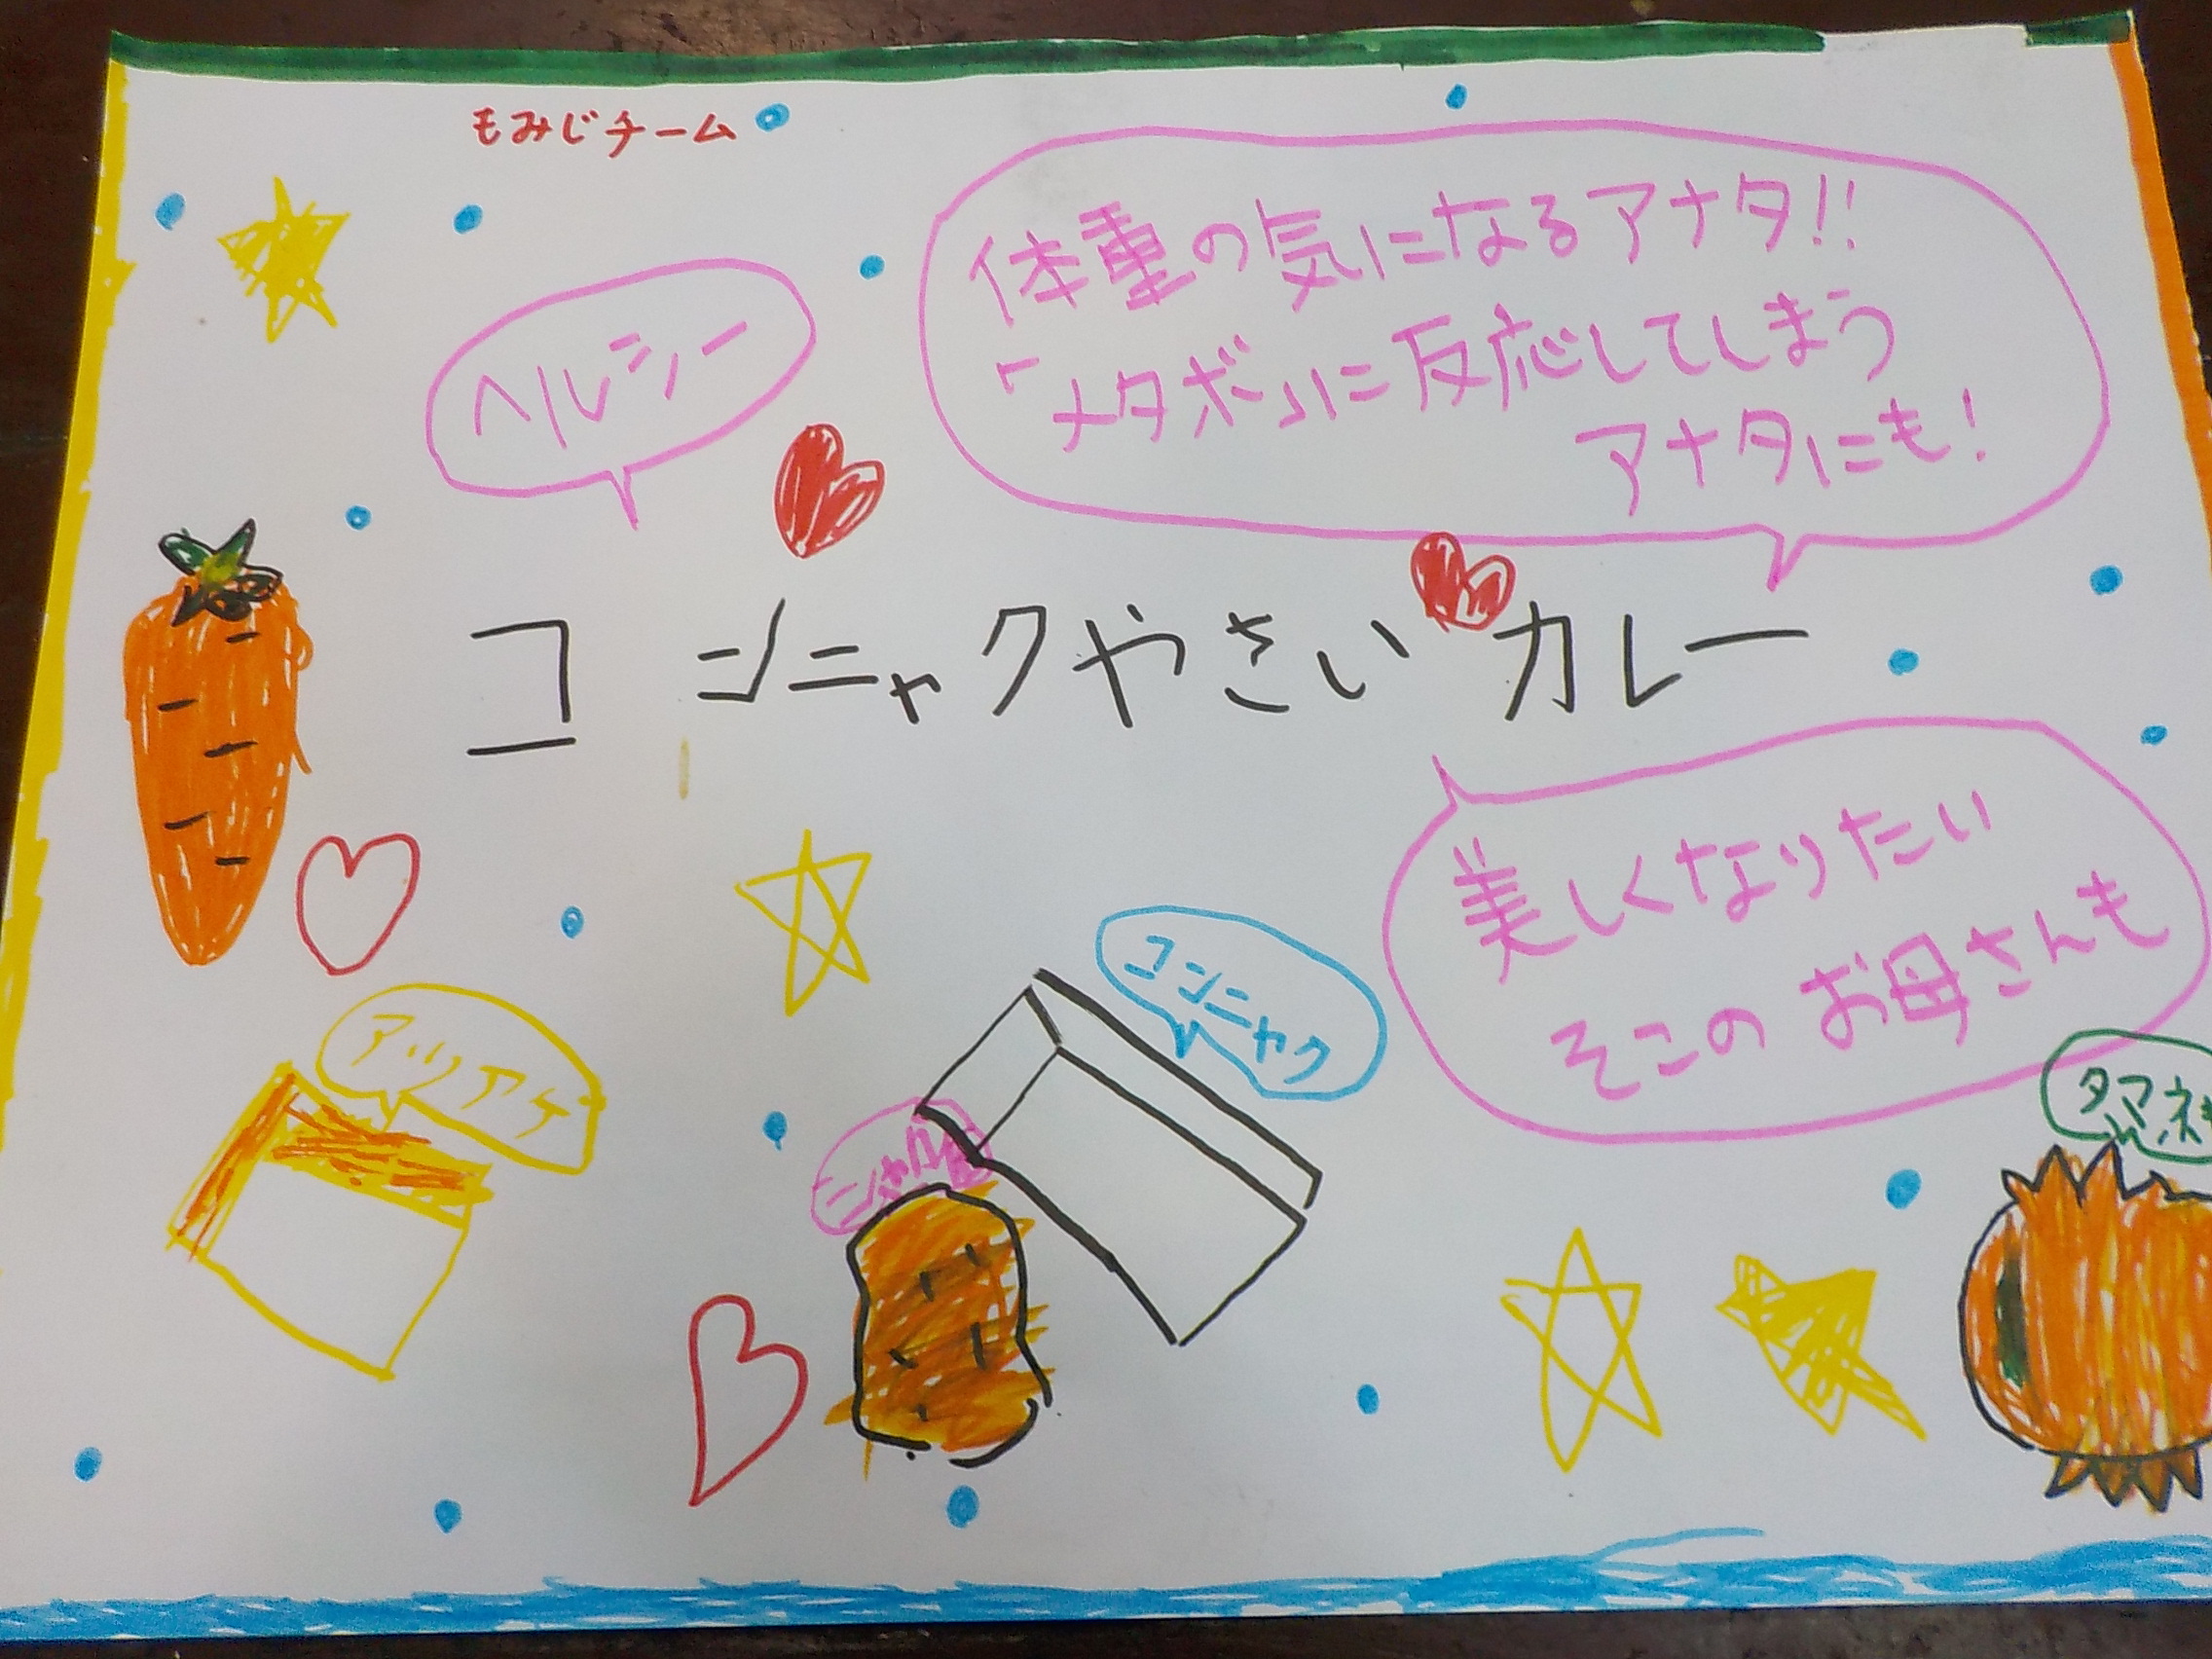 もみじチーム
体重の気になるアナタ!!
「メタボ」に反応してしまう
アナタにも!
ヘルシー
コンニャクやさいカレー
美しくなりたい
そこのお母さんも
コンニャク
アツアゲ